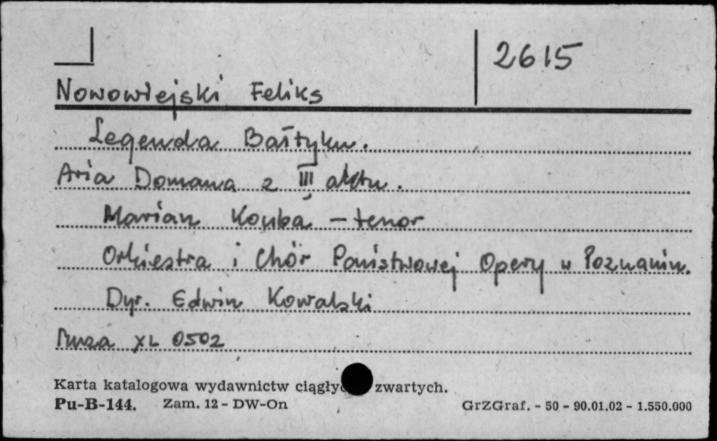 2615
Nowowiejski Feliks
Legenda Bałtyku.
Aria Domana z III aktu.
Marian Kouba - tenor
Orkiestra i Chór Państwowej Opery w Poznaniu.
Dyr. Edwin Kowalski
Muza XL 0502
Karta katalogowa wydawnictw ciągły zwartych.
Pu-B-144. Zam. 12 - DW-On GrZGraf. - 50 - 90.01.02 - 1.550.000